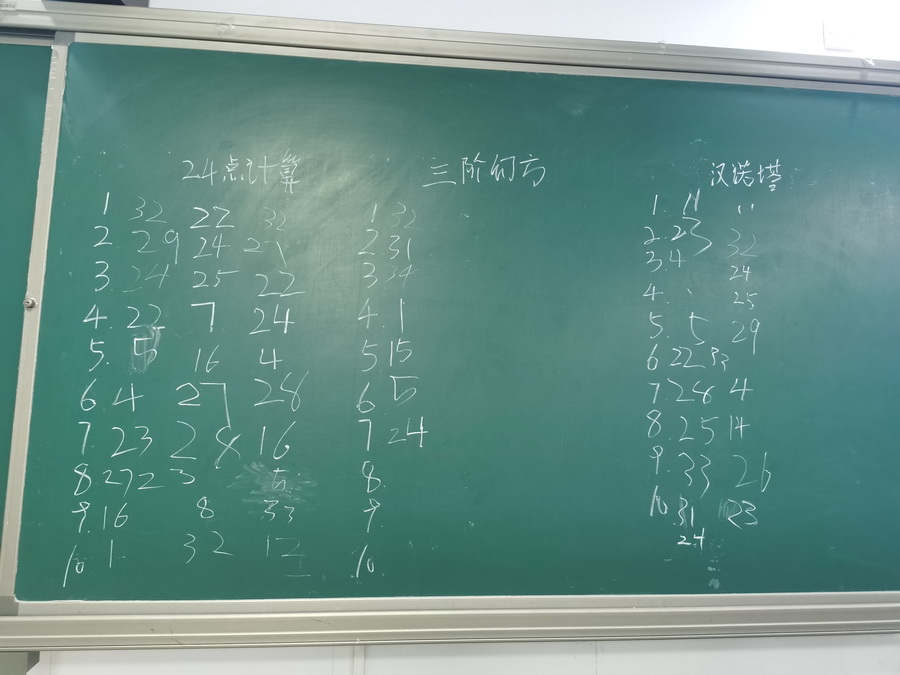 24点计算
1 32 22 32
2. 29 24 21
3. 24 25 22
4. 22 7 24
5. 5 16 4
6 4 27 28
7. 23 28 16
8. 27 23 5
9. 16 8 33
10 1 32 12
三阶幻方
1 32
2 31
3 24
4. 1
5. 15
6 5
7 24
8.
9.
10.
汉诺塔
1. 11 11
2. 23 32
3. 4 24
4. 25
5. 5 29
6 22 33
7. 28 4
8. 25 14
9. 33 26
10 31 23
24